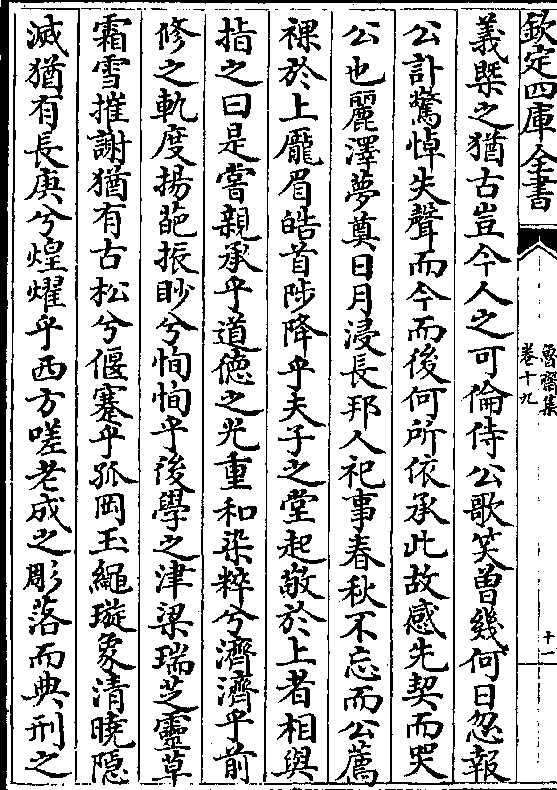 欽定四庫全書
魯齋集
卷十九
十一
義槩之猶古豈今人之可倫侍公歌笑曾幾何日忽報
公訃驚悼失聲而今而後何所依承此故感先契而哭
公也麗澤夢奠日月浸長邦人祀事春秋不忘而公薦
祼於上龎眉皓首陟降乎夫子之堂起敬於上者相與
指之曰是嘗親承乎道德之光重和染粹兮濟濟乎前
修之軌度揚葩振眇兮恂恂乎後學之津梁瑞芝靈草
霜雪摧謝猶有古松兮偃蹇乎孤岡玉繩璇象清曉隠
滅猶有長庚兮煌燿乎西方嗟老成之彫落而典刑之